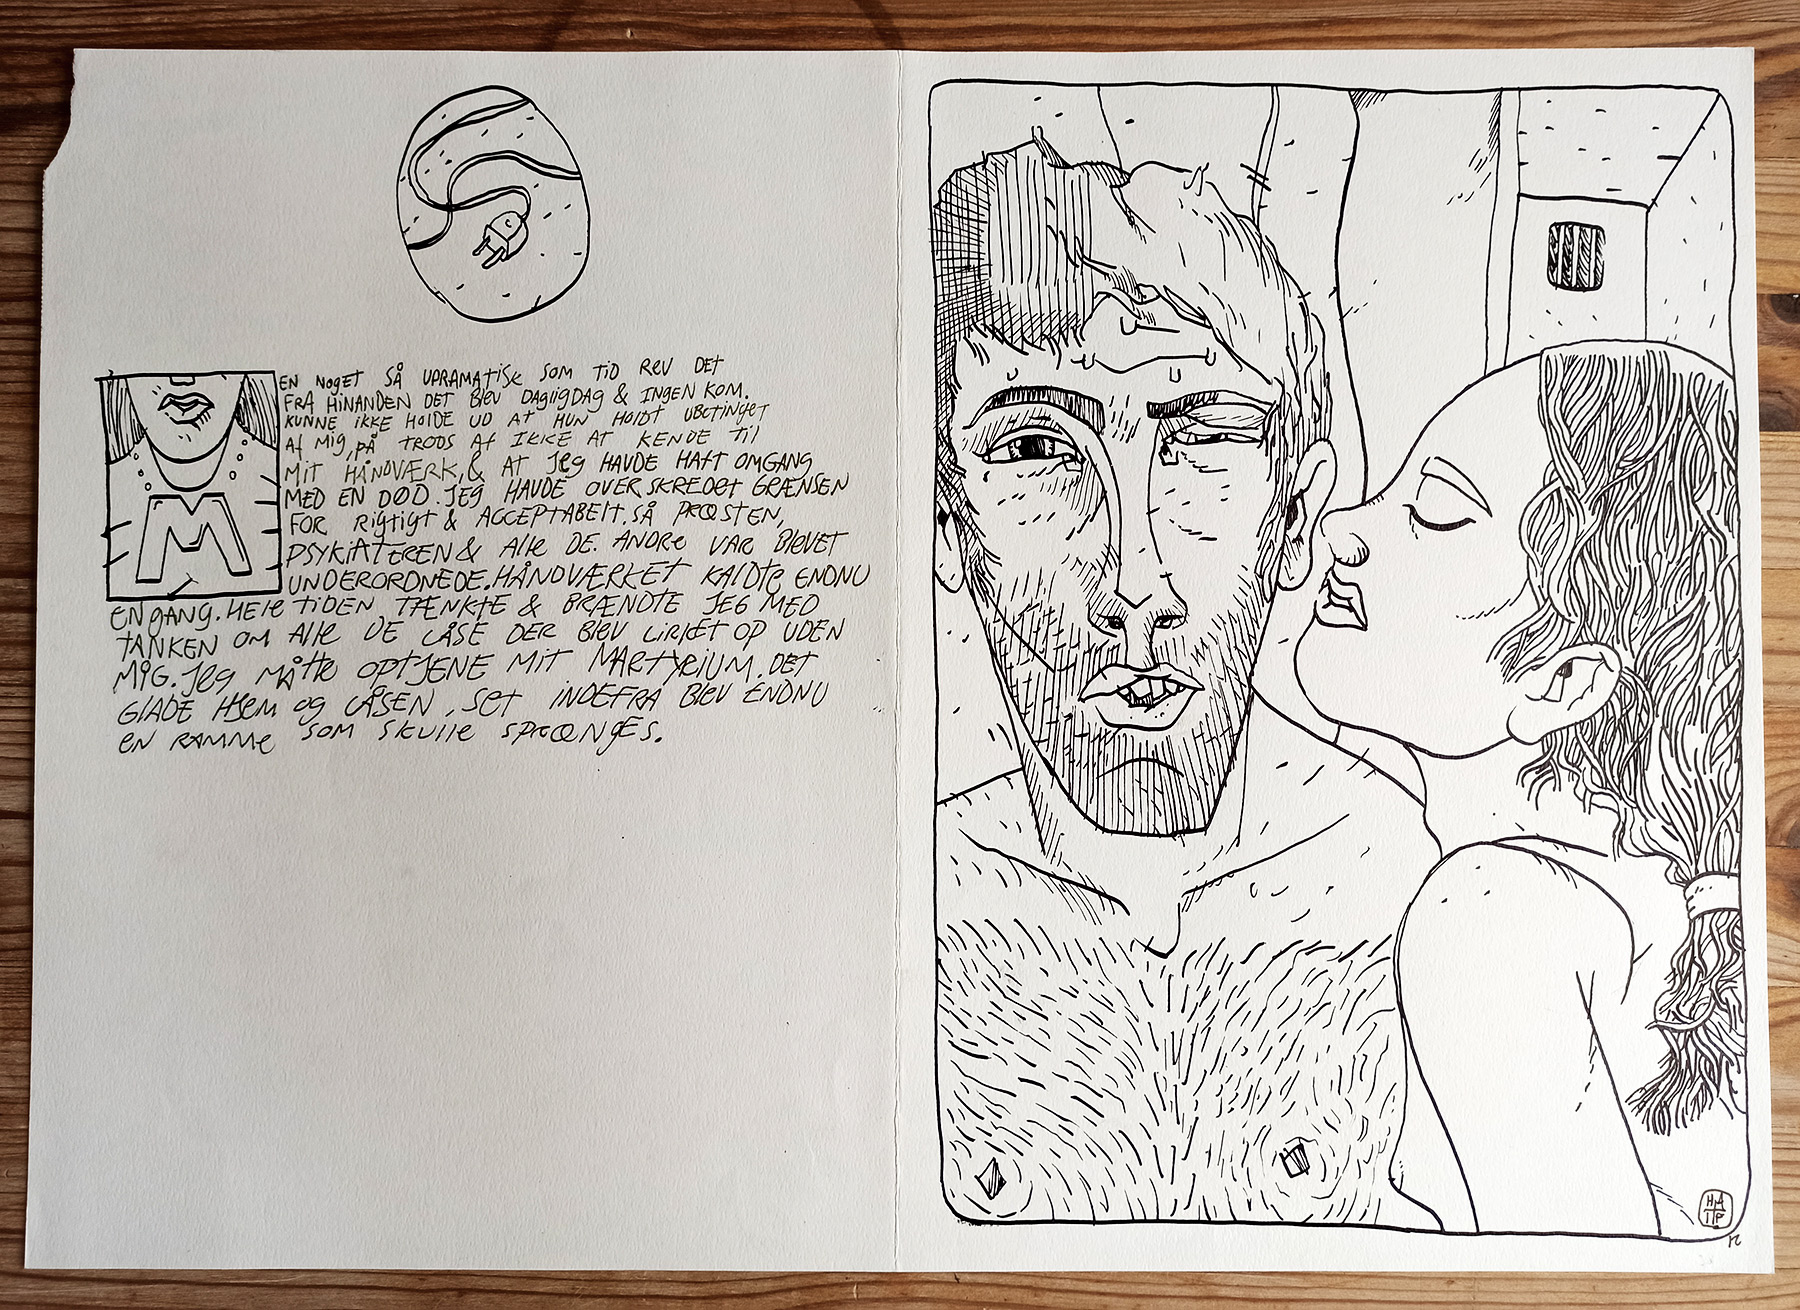 M
EN NOGET SÅ UDRAMATISK SOM TID REV DET
FRA HINANDEN DET BLEV DAGLIGDAG & INGEN KOM.
KUNNE IKKE HOLDE UD AT HUN HOLDT UBETINGET
AF MIG, PÅ TRODS AF IKKE AT KENDE TIL
MIT HÅNDVÆRK, & AT JEG HAVDE HAFT OMGANG
MED EN DØD. JEG HAVDE OVERSKREDET GRÆNSEN
FOR RIGTIGT & ACCEPTABELT. SÅ PRÆSTEN,
PSYKIATEREN & ALLE DE ANDRE VAR BLEVET
UNDERORDNEDE. HÅNDVÆRKET KALDTE ENDNU
EN GANG. HELE TIDEN TÆNKTE & BRÆNDTE JEG MED
TANKEN OM ALLE DE LÅSE DER BLEV LIRKET OP UDEN
MIG. JEG MÅTTE OPTJENE MIT MARTYRIUM. DET
GLADE HJEM OG LÅSEN, SET INDEFRA BLEV ENDNU
EN RAMME SOM SKULLE SPRÆNGES.